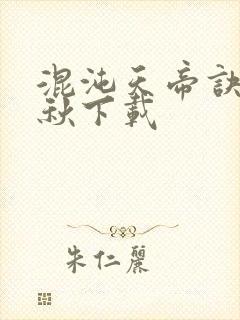 混沌天帝訣
秋下載
朱仁麗